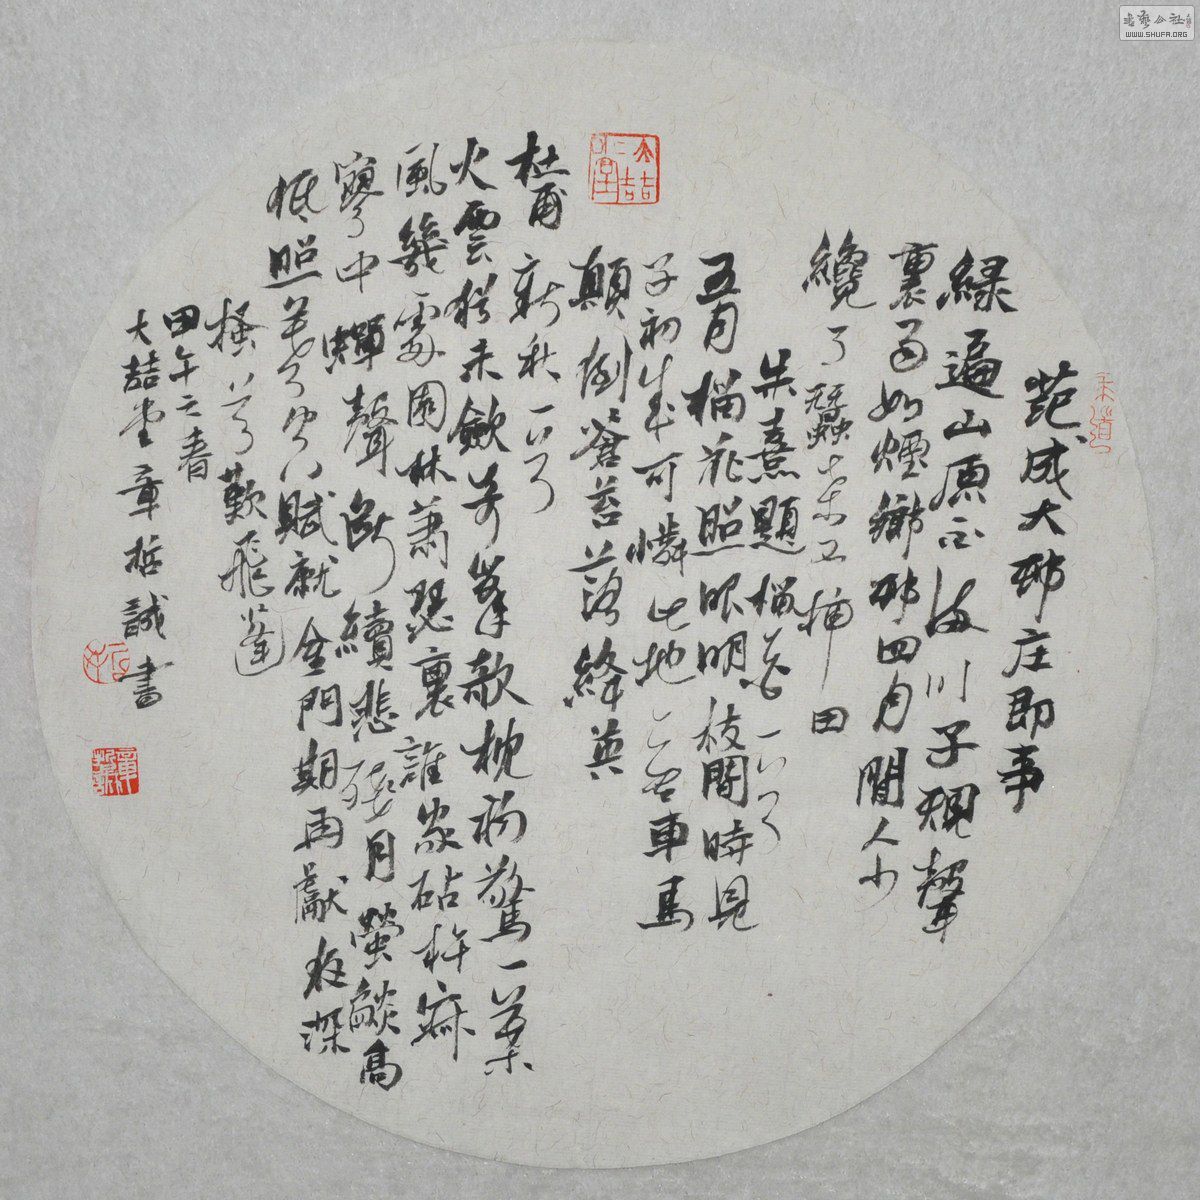 范成大邨庄即事
綠遍山原白滿川子規聲
裏雨如煙鄉邨四月閒人少
纔了蠶桑又插田
朱熹題榴花一首
五月榴花照眼明枝間時見
子初成可憐此地無車馬
顛倒蒼苔落絳英
杜甫新秋一首
火雲猶未斂奇峯欹枕初驚一葉
風幾處園林蕭瑟裏誰家砧杵寂
寥中蟬聲斷續悲殘月螢燄高
低照暮空賦就金門期再獻夜深
搔首歎飛蓬
甲午之春
大喆堂章哲誠書
大喆堂
書藝公社
WWW.SHUFA.ORG